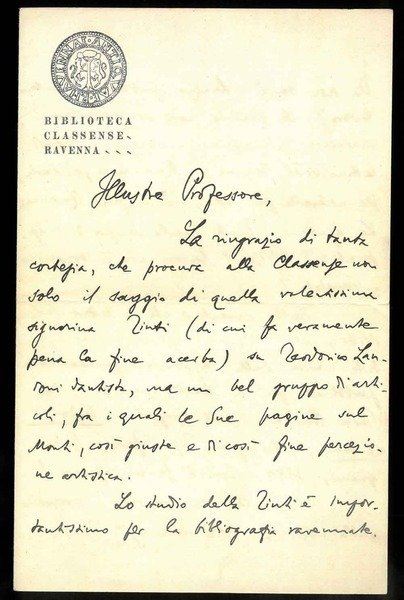 RAVENNA ANTIQUA
BIBLIOTECA
CLASSENSE
RAVENNA
Illustre Professore,
La ringrazio di tanta
cortesia, che procura alla Classense non
solo il saggio di quella valentissima
signorina Zinti (di cui fa veramente
pena la fine acerba) su Teodorico Lan-
doni dantista, ma un bel gruppo di arti-
coli, fra i quali le Sue pagine sul
Monti, così giuste e di così fine percezio-
ne artistica.
Lo studio della Zinti è impor-
tantissimo per la bibliografia ravennate.